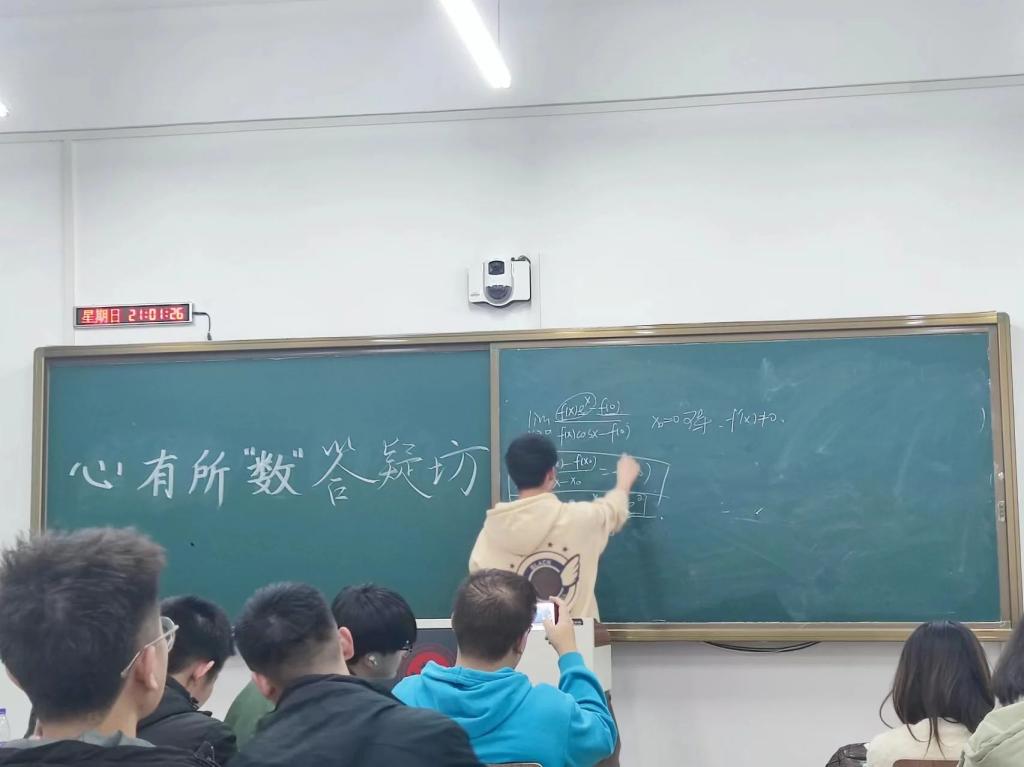 星期日 21:01:26
心有所"数"答疑坊
lim f(x)eˣ-f(0) / f(x)cosx-f(0) x₀=0可导 f'(x)≠0.
-f(x₀) / x-x₀ =
BLACK